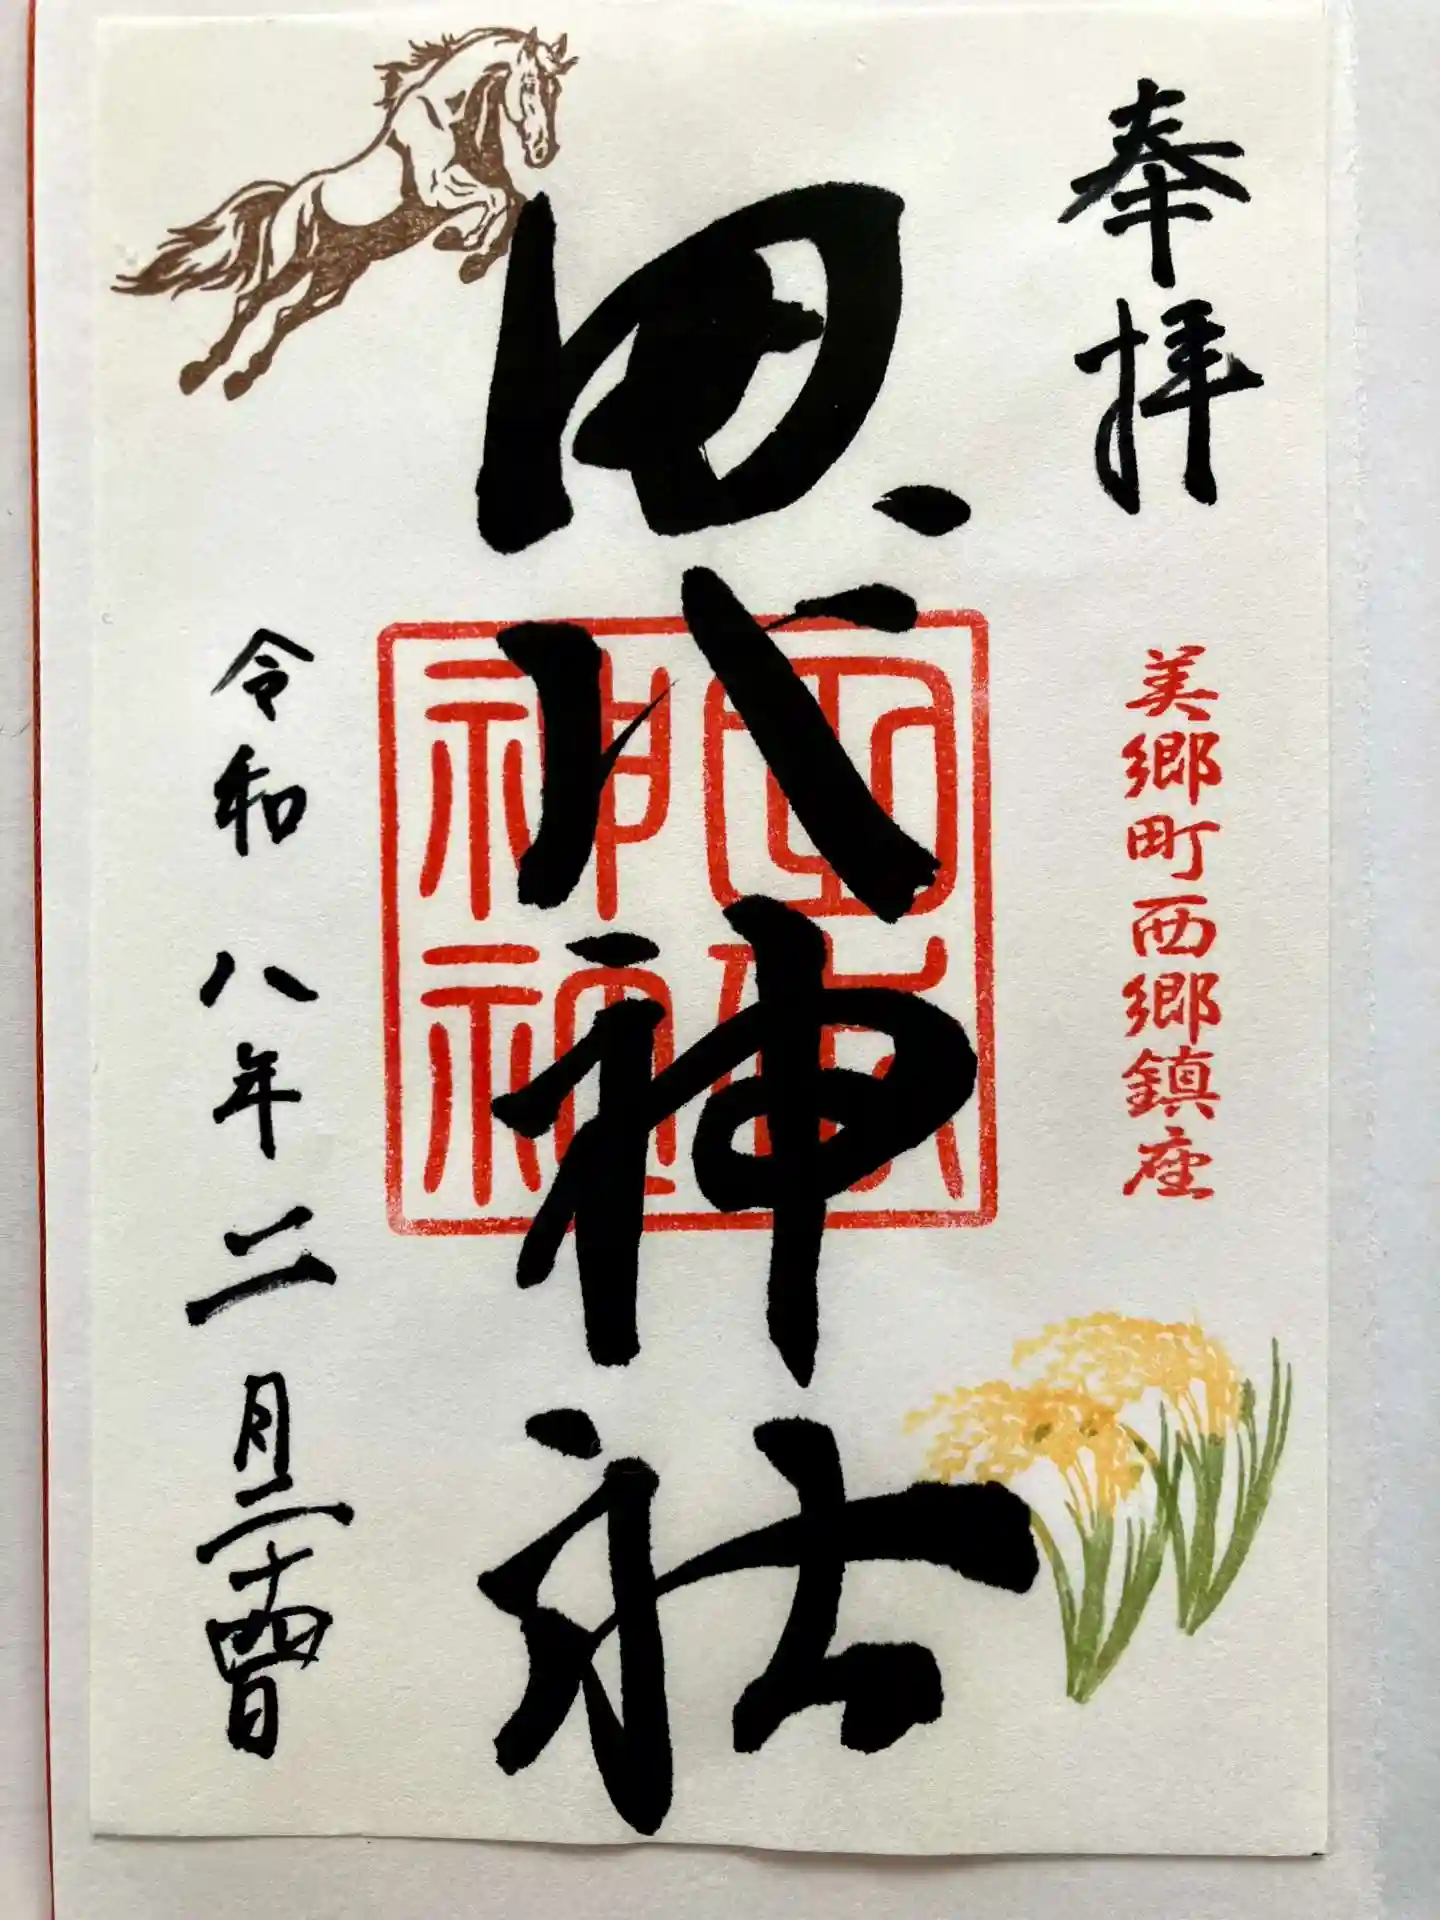 奉拝
美郷町西郷鎮座
田代神社
田代
神社
令和八年二月二十四日